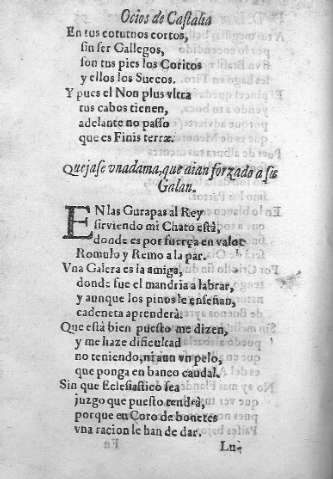 Ocios de Castalia
En tus coturnos cortos,
sin ser Gallegos,
son tus pies los Coritos
y ellos los Suecos.
Y pues el Non plus vltra
tus cabos tienen,
adelante no passo
que es Finis terræ.
Quejase vna dama, que aian forzado a su
Galan.
EN las Gurapas al Rey
sirviendo mi Chato està,
donde es por fuerça en valor
Romulo y Remo a la par.
Vna Galera es la amiga,
donde fue el mandria a labrar,
y aunque los pinos le enseñan,
cadeneta aprenderà.
Que está bien puesto me dizen,
y me haze dificultad
no teniendo, ni aun vn pelo,
que ponga en banco caudal.
Sin que Eclesiastico sea
juzgo que puesto tendrà,
porque en Coro de bonetes
vna racion le han de dar.
Lu-